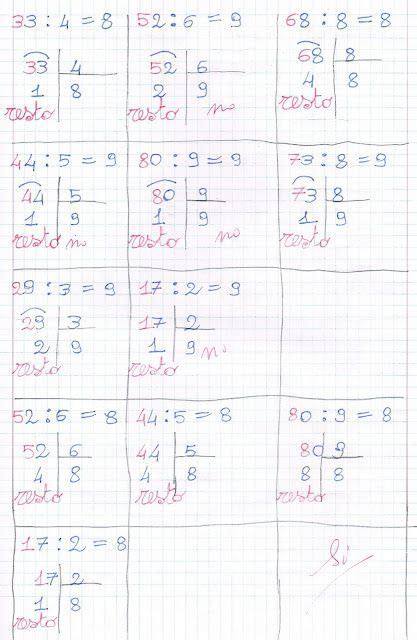 33 : 4 = 8 52 : 6 = 9 68 : 8 = 8
33 4 52 6 68 8
1 8 2 9 4 8
resto resto no resto
44 : 5 = 9 80 : 9 = 9 73 : 8 = 9
44 5 80 9 73 8
1 9 1 9 1 9
resto no resto no resto
29 : 3 = 9 17 : 2 = 9
29 3 17 2
2 9 1 9 no
resto resto
52 : 6 = 8 44 : 5 = 8 80 : 9 = 8
52 6 44 5 80 9
4 8 4 8 8 8
resto resto resto
17 : 2 = 8 Si
17 2
1 8